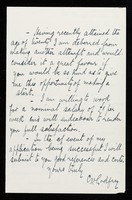 - Having recently attained the
age of twenty I am debarred from
making another attempt and would
consider it a great favour if
you would be so kind as to give
me this opportunity of making a
start.
- I am willing to work
for a nominal salary of £1 per
week and will endeavour to render
you full satisfaction.
- In the event of my
application being successful I will
submit to you good references and
Yours truly
C W Godfrey